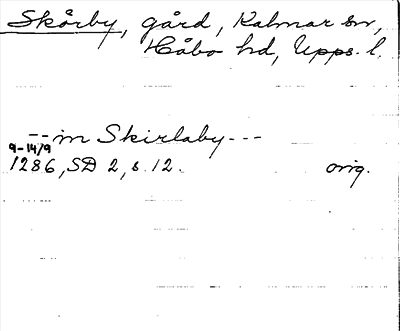 Skårby, gård, Kalmar sn,
Håbo hd, Upps. l.
--in Skirlaby---
9-14/9
1286, SD 2, s. 12.
orig.